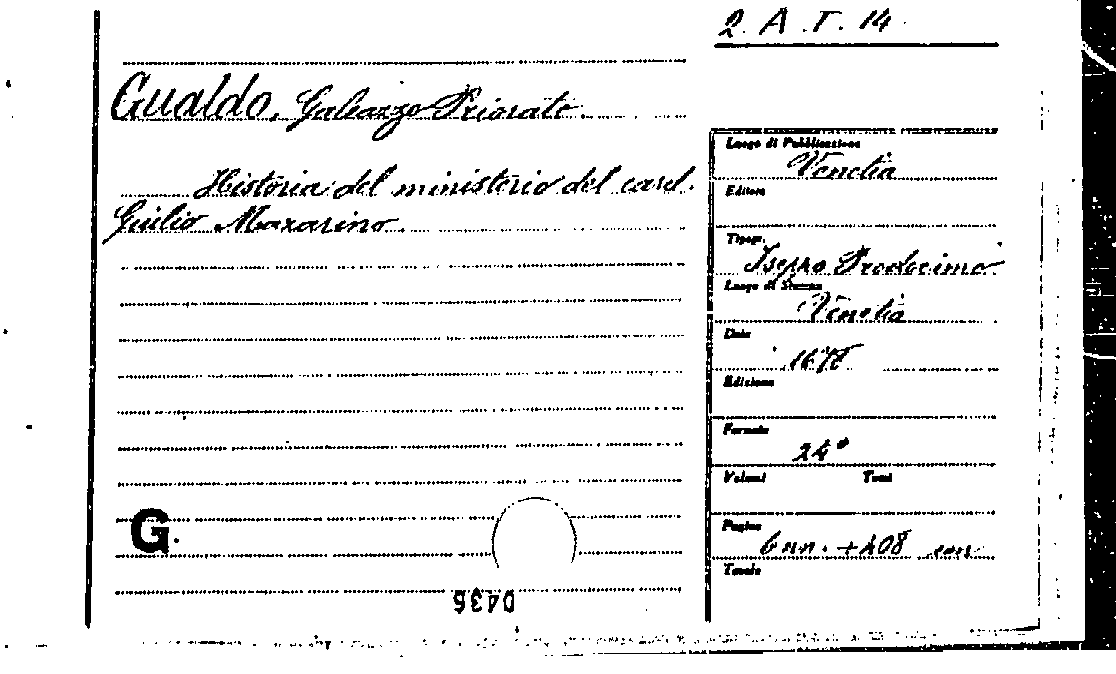 2. A. T. 14
Gualdo, Galeazzo Priorato.
Historia del ministerio del card.
Giulio Mazarino.
Luogo di Pubblicazione
Venetia
Editore
Tipogr.
Iseppo Prodocimo
Luogo di Stampa
Venetia
Data
1678
Edizione
Formato
24°
Volumi Tomi
Pagine
6 nn. + 408
Tavole
G.
0435